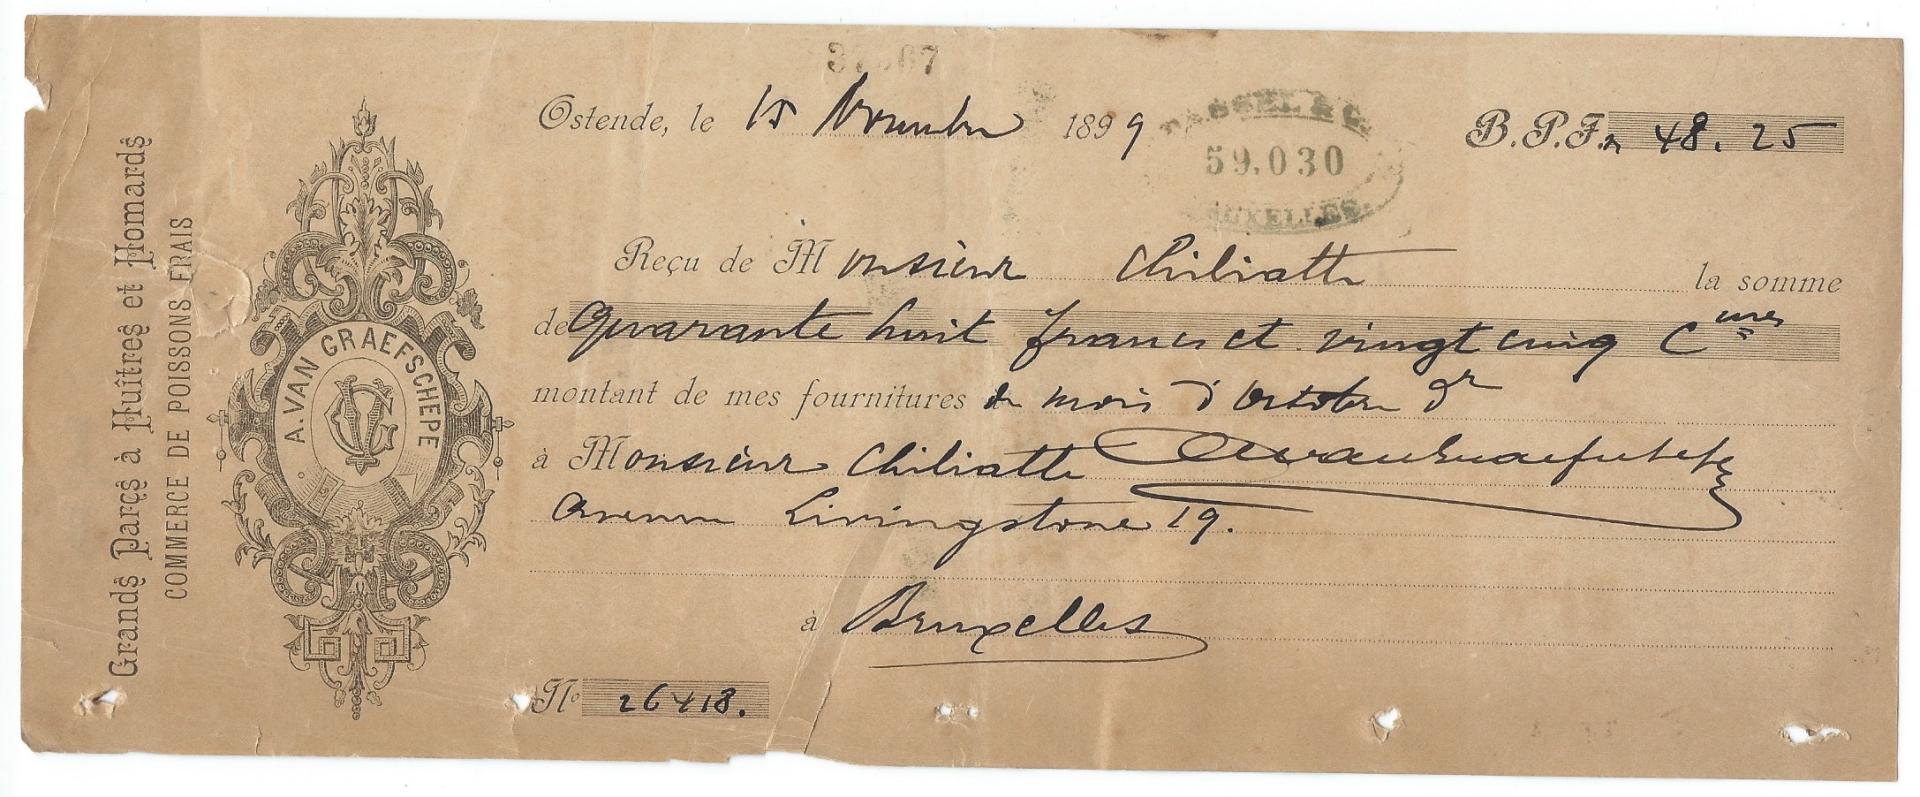 Grands Parcs à Huîtres et Homards
COMMERCE DE POISSONS FRAIS
A. VAN GRAEFSCHEPE
Ostende, le 15 Novembre 1899
59.030
BRUXELLES.
B.P.F. 48.25
Reçu de Monsieur Chiliatte la somme
de quarante huit francs et vingt cinq Cmes
montant de mes fournitures du mois d'octobre dr
à Monsieur Chiliatte AVanGraefschepe
Avenue Livingstone 19.
à Bruxelles
No 26418.